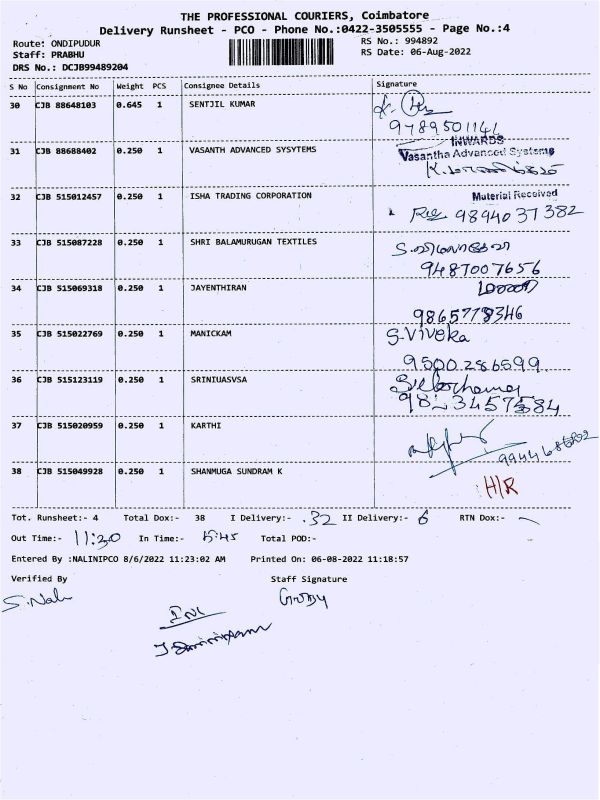 THE PROFESSIONAL COURIERS, Coimbatore
Delivery Runsheet - PCO - Phone No.:0422-3505555 - Page No.:4
Route: ONDIPUDUR
RS No.: 994892
Staff: PRABHU
RS Date: 06-Aug-2022
DRS No.: DCJB99489204
S No Consignment No Weight PCS Consignee Details Signature
30 CJB 88648103 0.645 1 SENTJIL KUMAR
9789501144
31 CJB 88688402 0.250 1 VASANTH ADVANCED SYSYTEMS
INWARDS
Vasantha Advanced Systems
32 CJB 515012457 0.250 1 ISHA TRADING CORPORATION
Material Received
9894037382
33 CJB 515087228 0.250 1 SHRI BALAMURUGAN TEXTILES
9487007656
34 CJB 515069318 0.250 1 JAYENTHIRAN
9865778346
35 CJB 515022769 0.250 1 MANICKAM
S.Viveka
9500286599
36 CJB 515123119 0.250 1 SRINIUASVSA
37 CJB 515020959 0.250 1 KARTHI
38 CJB 515049928 0.250 1 SHANMUGA SUNDRAM K
H/R
Tot. Runsheet:- 4 Total Dox:- 38 I Delivery:- 32 II Delivery:- 6 RTN Dox:-
Out Time:- 11:30 In Time:- Total POD:-
Entered By :NALINIPCO 8/6/2022 11:23:02 AM Printed On: 06-08-2022 11:18:57
Verified By Staff Signature